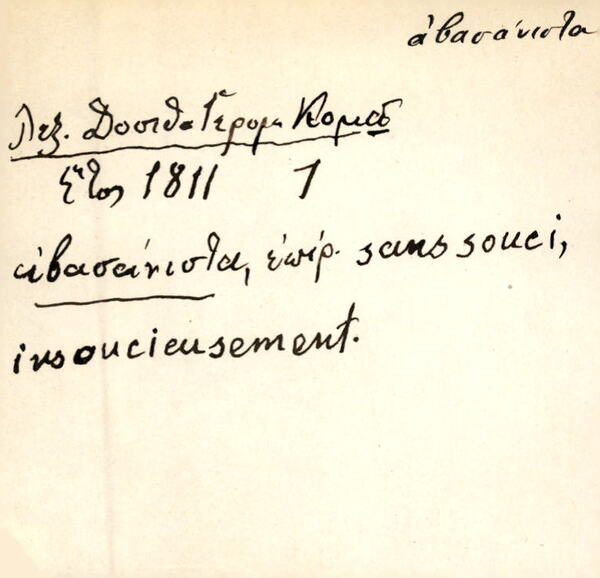 ἀβασάνιστα
Λεξ. Δοσιθ. Ἱερομ. Κομᾶ
Ἔτος 1811 1
ἀβασάνιστα, ἐπίρ. sans souci,
insoucieusement.